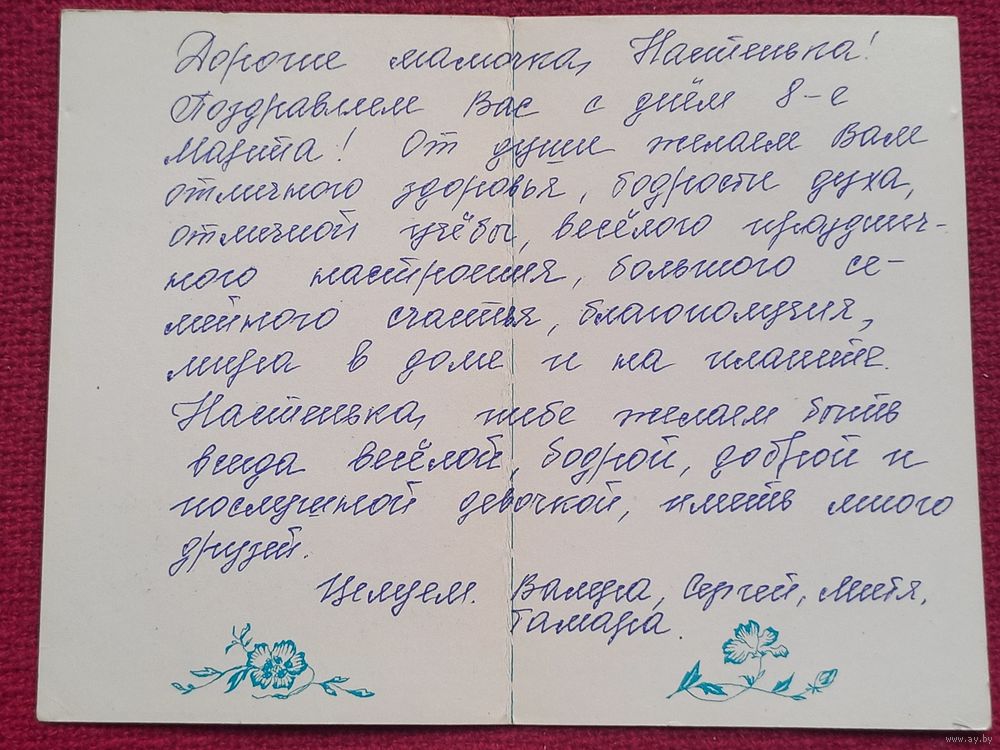 Дорогие мамочка, Настенька!
Поздравляем Вас с днём 8-е
Марта! От души желаем Вам
отличного здоровья, бодрости духа,
отличной учёбы, весёлого празднич-
ного настроения, большого се-
мейного счастья, благополучия,
мира в доме и на планете.
Настенька, тебе желаем быть
всегда весёлой, бодрой, доброй и
послушной девочкой, иметь много
друзей.
Целуем. Валера, Сергей, Митя,
Тамара.
www.ay.by